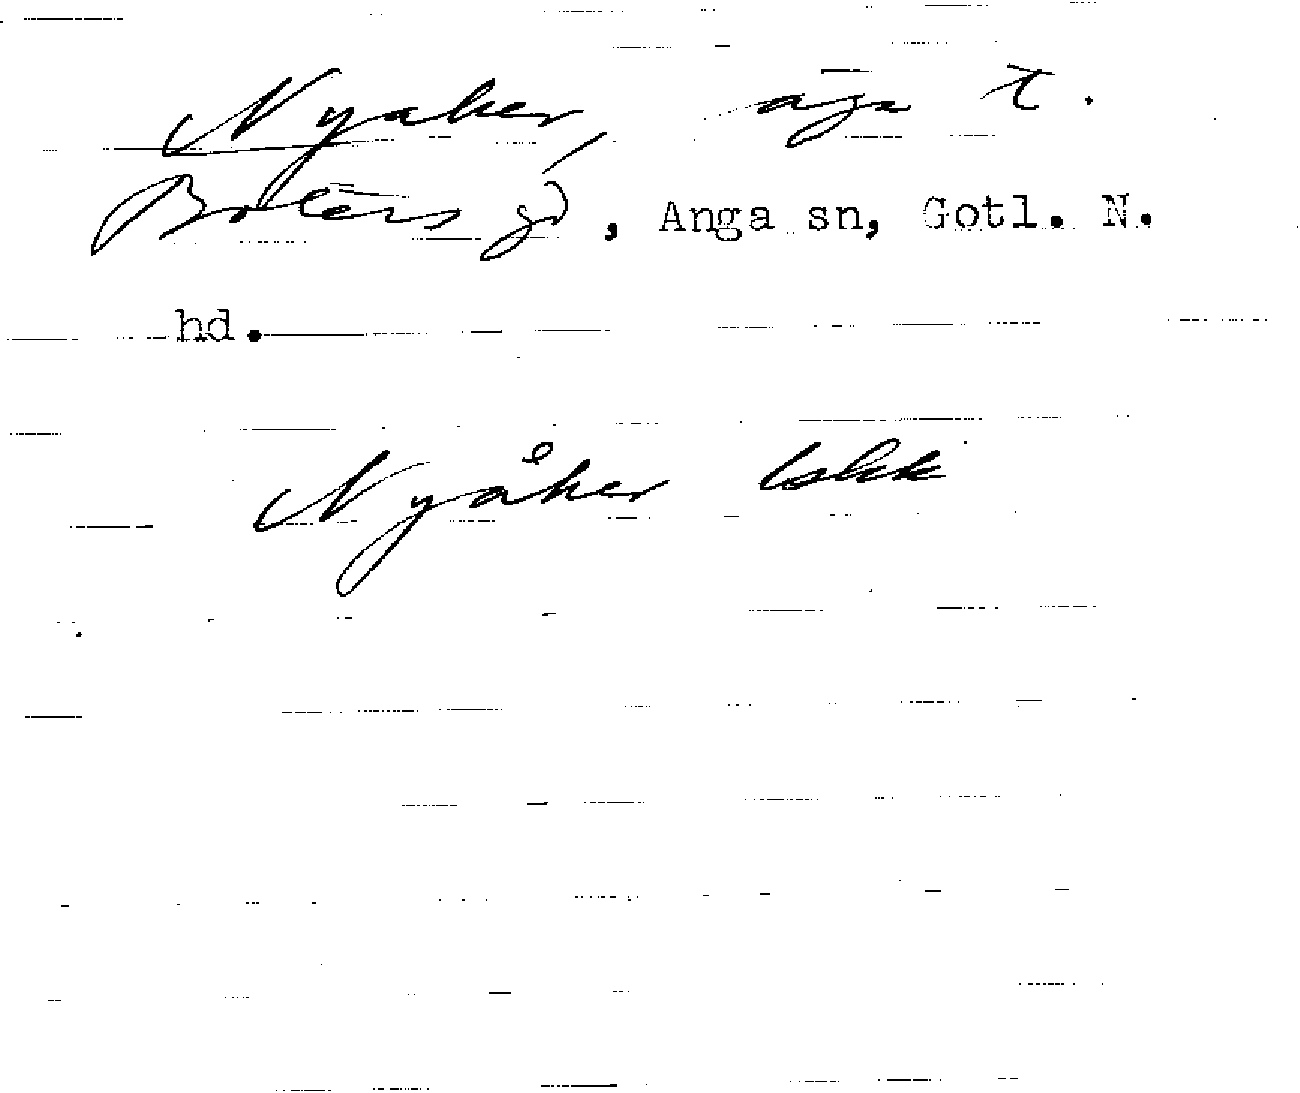 Nyaker, äga t.
Boters gd, Anga sn, Gotl. N.
hd.
Nyåker